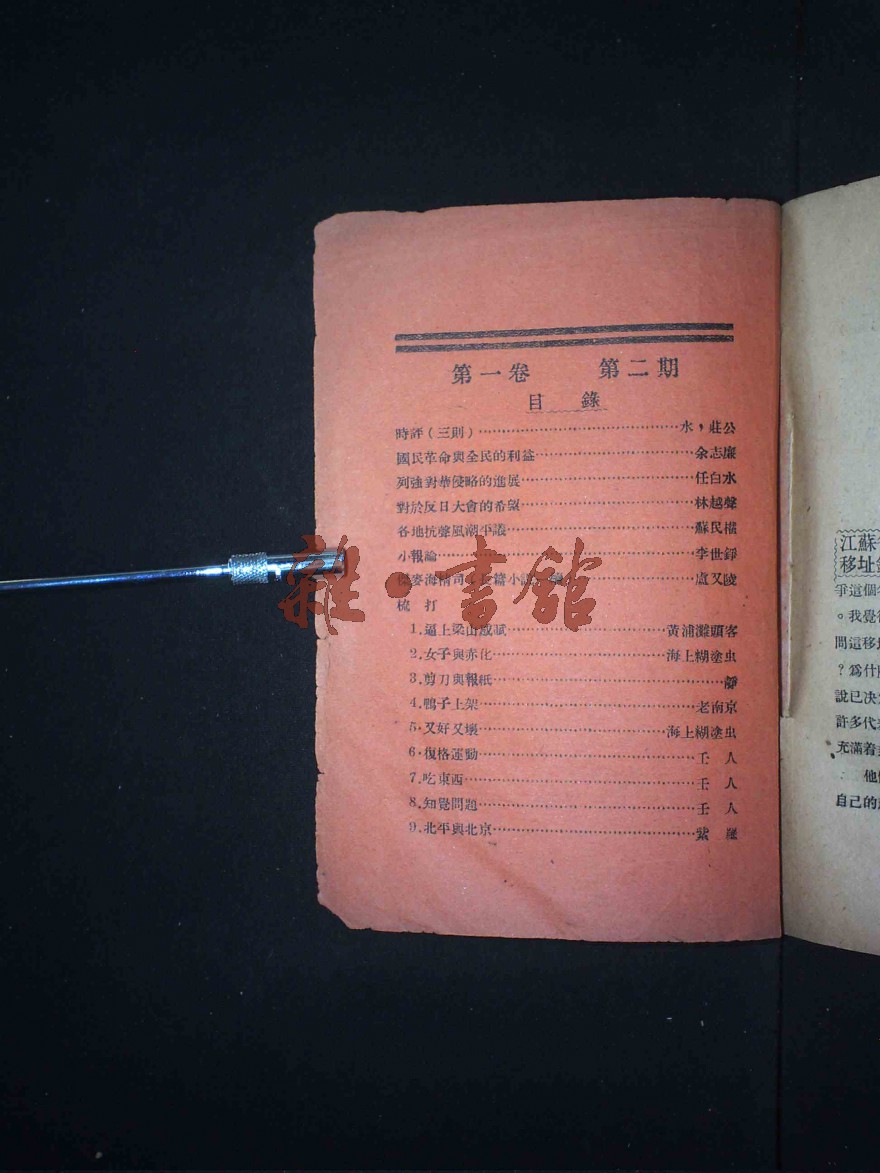 第一卷 第二期
目錄
時評（三則）……水，莊公
國民革命與全民的利益……余志廉
列強對華侵略的進展……任白水
對於反日大會的希望……林越聲
各地抗聲風潮平議……蘇民權
小報論……李世錚
海 司 篇小 ……盧又陵
梳打
1.逼上梁山戲賦……黃浦灘頭客
2.女子與赤化……海上糊塗虫
3.剪刀與報紙……靜
4.鴨子上架……老南京
5.又好又壞……海上糊塗虫
6.復格運動……壬人
7.吃東西……壬人
8.知覺問題……壬人
9.北平與北京……紫
雜·書館
江蘇
移址
爭這個
。我覺
問這移
？爲什
說已決
許多代
充滿着
他
自己的